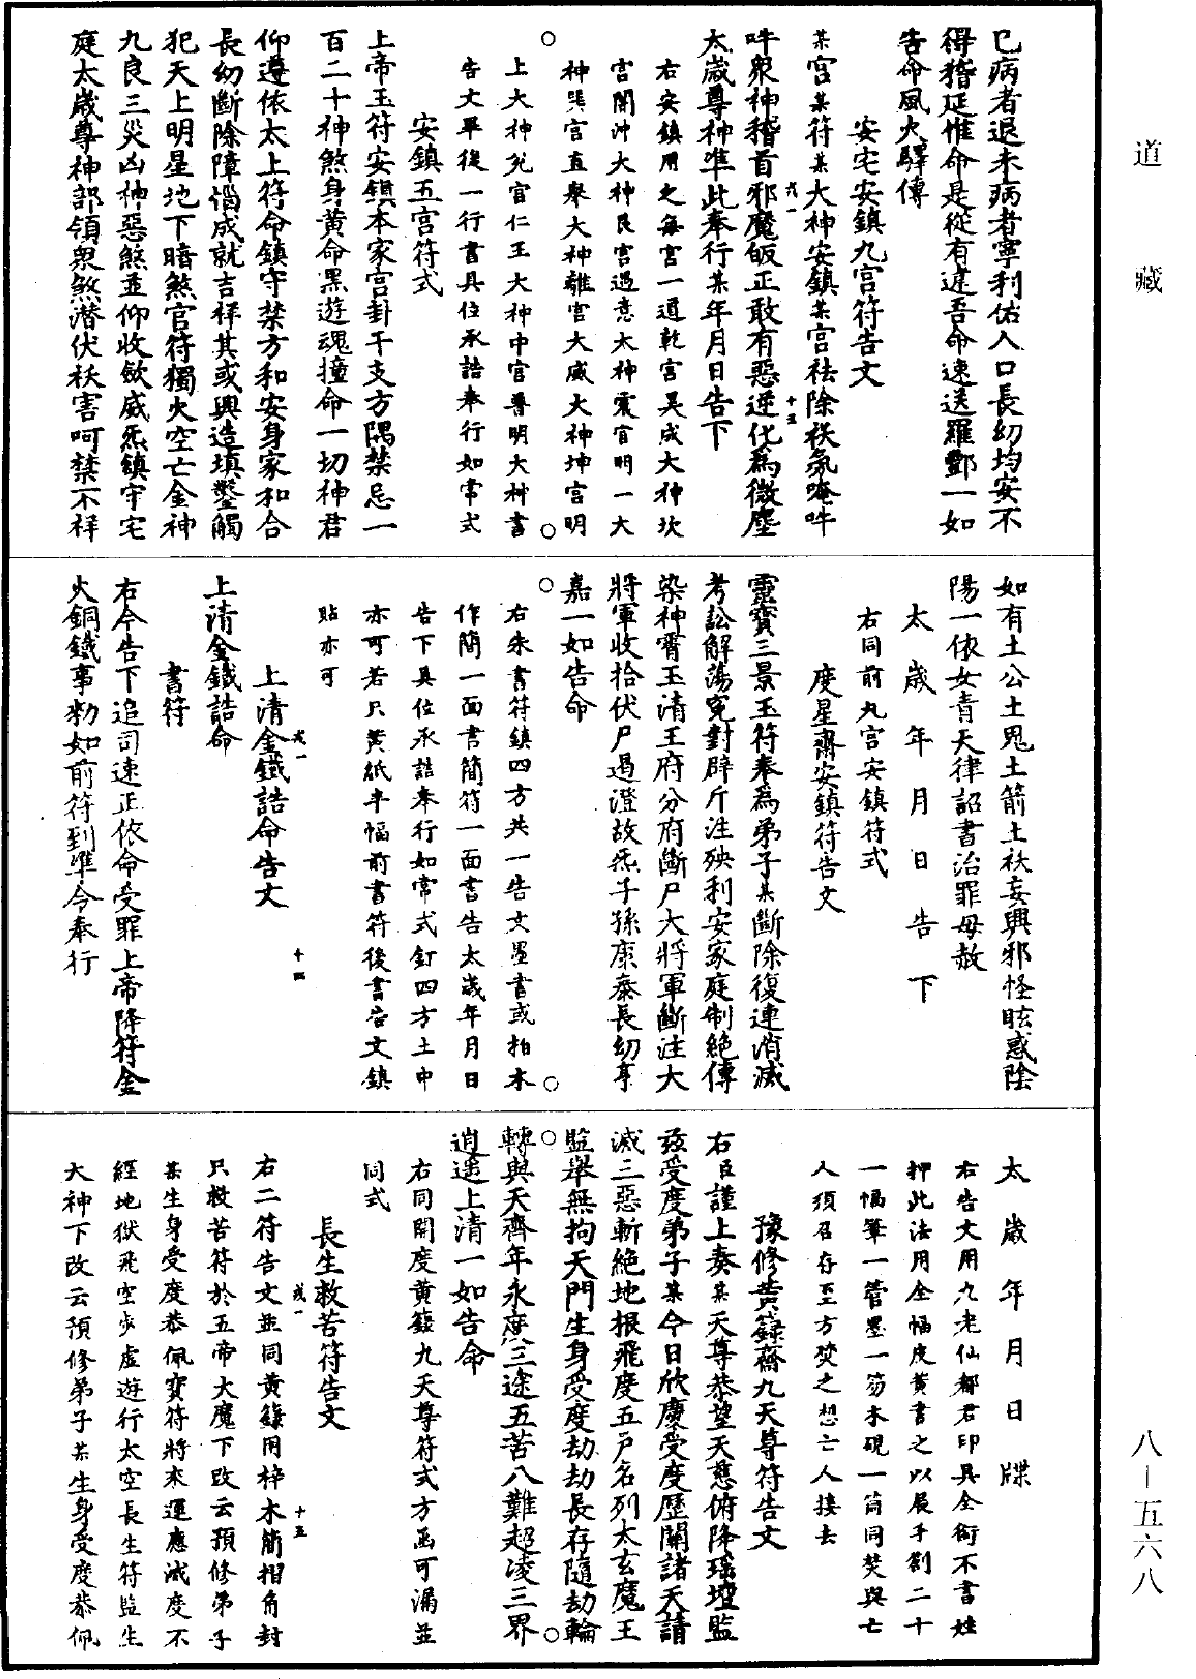 道藏
已病者退未病者寧利佑人口長幼均安不
得稽延惟命是從有違吾命速送羅酆一如
告命風火驛傳
安宅安鎮九宮符告文
某宮某符某大神安鎮某宮祛除祅氛唵吽
吽眾神稽首邪魔皈正敢有惡逆化為微塵
太歲尊神準此奉行某年月日告下
右安鎮用之每宮一道乾宮吴成大神坎
宮開沖大神艮宮過意太神震宮明一大
神巽宮直舉大神離宮大威大神坤宮明
上大神兌宮仁王大神中宮普明大神書
告文畢後一行書具位承誥奉行如常式
安鎮五宮符式
上帝玉符安鎮本家宮卦干支方隅禁忌一
百二十神煞身黃命黑遊魂撞命一切神君
仰遵依太上符命鎮守禁方和安身家和合
長幼斷除障惱成就吉祥其或興造填鑿觸
犯天上明星地下暗煞官符獨火空亡金神
九良三災凶神惡煞並仰收斂威炁鎮守宅
庭太歲尊神部領眾煞潛伏祅害呵禁不祥
戎一
十三
如有土公土鬼土箭土祅妄興邪怪眩惑陰
陽一依女青天律詔書治罪毋赦
太歲年月日告下
右同前九宮安鎮符式
度星齋安鎮符告文
靈寶三景玉符奉為弟子某斷除復連消滅
考訟解蕩冤對辟斥注殃利安家庭制絕傳
染神霄玉清王府分府斷尸大將軍斷注大
將軍收拾伏尸遏澄故炁子孫康泰長幼亨
嘉一如告命
右朱書符鎮四方共一告文墨書或柏木
作簡一面書簡符一面書告太歲年月日
告下具位承誥奉行如常式釘四方土中
亦可若只黃紙半幅前書符後書告文鎮
貼亦可
上清金鐵誥命告文
上清金鐵誥命
書符
右今告下追司速正依命受罪上帝降符金
火銅鐵事勑如前符到準令奉行
戎一
十四
太歲年月日牒
右告文用九老仙都君印具全銜不書姓
押此法用全幅皮黃書之以展手劄二十
一幅筆一管墨一笏木硯一筒同焚與亡
人須召存至方焚之想亡人接去
豫修黃籙齋九天尊符告文
右臣謹上奏某天尊恭望天慈俯降瑤壇監
茲受度弟子某今日欣慶受度歷關諸天請
滅三惡斬絕地根飛度五戶名列太玄魔王
監舉無拘天門生身受度劫劫長存隨劫輪
轉與天齊年永度三途五苦八難超凌三界
逍遙上清一如告命
右同開度黃籙九天尊符式方函可漏並
同式
長生救苦符告文
右二符告文並同黃籙用梓木簡摺角封
只救苦符於五帝大魔下改云預修弟子
某生身受度恭佩寶符將來運應滅度不
經地獄飛空步虛遊行太空長生符監生
大神下改云預修弟子某生身受度恭佩
戎一
十五
八—五六八